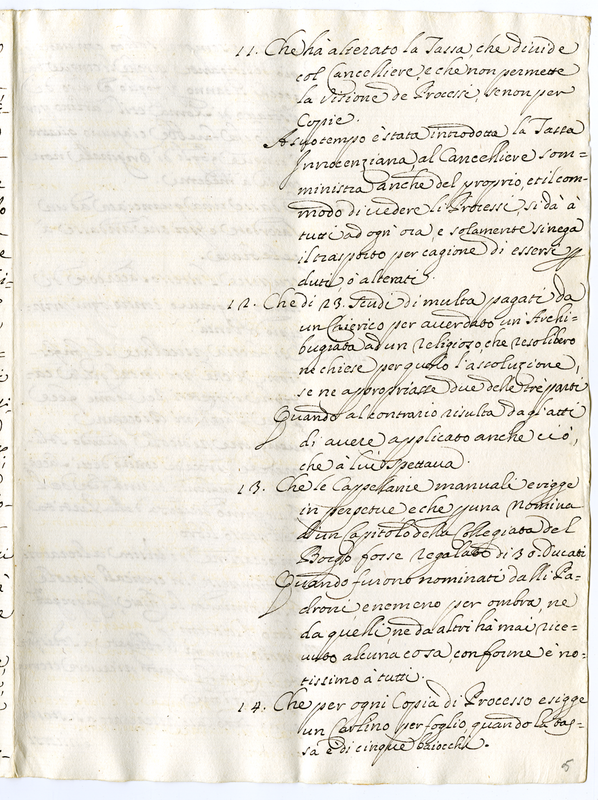 11. Che hà alterato la Tassa, che divide
col Cancelliere, e che non permette
la visione de Processi, se non per
Copie.
A suo tempo è stata introdotta la Tassa
Innocenziana, al Cancelliere som=
ministra anche del proprio, et il com=
modo di vedere li Processi, si dà à
tutti ad ogn'ora, e solamente si nega
il trasporto per cagione di essersi
duti, ò alterati.
12. Che di 23. Scudi di multa pagati da
un Chierico per aver dato un'Archi=
bugiata ad un Religioso, che reso libero
ne chiese per quello l'assoluzione,
se ne appropriasse due delle tre parti
Quando al contrario risulta dagl'atti
di avere applicato anche ciò,
che à lui spettava.
13. Che le Cappellanie manuali erigge
in perpetue e che una Nomina
d'un Capitolo della Collegiata del
Borgo fosse regalato di 30. Ducati
Quando furono nominati dalli Pa=
droni, e nemeno per ombra, ne
da quelli, ne da altri hà mai rice=
vuto alcuna cosa, conforme è no=
tissimo à tutti.
14. Che per ogni Copia di Processo esigge
un Carlino per foglio, quando la tas=
sa è di cinque baiocchi.
5